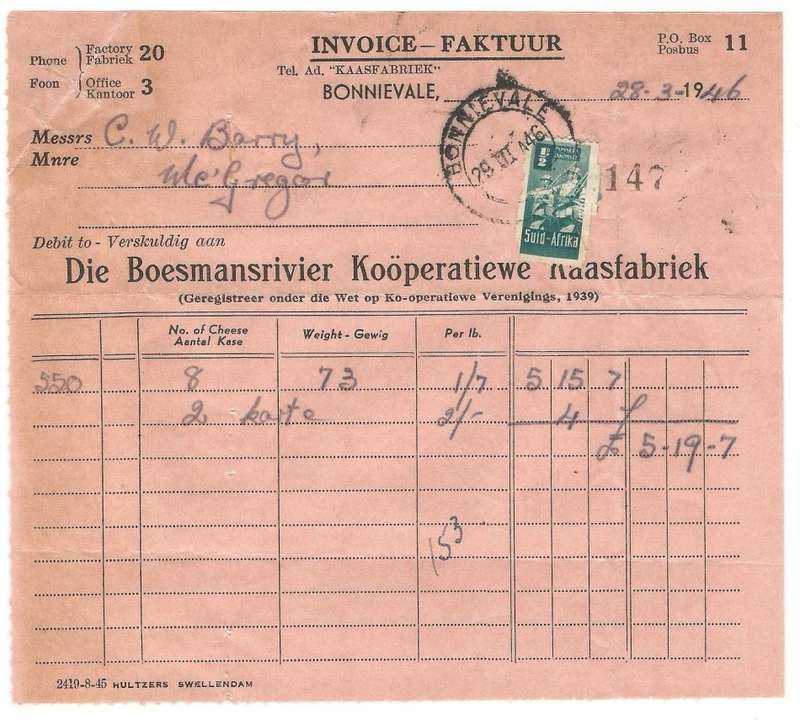 Phone Foon
Factory Fabriek 20
Office Kantoor 3
INVOICE – FAKTUUR
Tel. Ad. "KAASFABRIEK"
P.O. Box Posbus 11
BONNIEVALE, 28-3-1946
BONNIEVALE
Messrs Mnre C. W. Barry,
McGregor
147
½
Suid-Afrika
Debit to - Verskuldig aan
Die Boesmansrivier Koöperatiewe Kaasfabriek
(Geregistreer onder die Wet op Ko-operatiewe Verenigings, 1939)
No. of Cheese Aantal Kase Weight - Gewig Per lb.
550 8 73 1/7 5 15 7
2 karte 2/- 4
£ 5-19-7
153
2419-8-45 HULTZERS SWELLENDAM